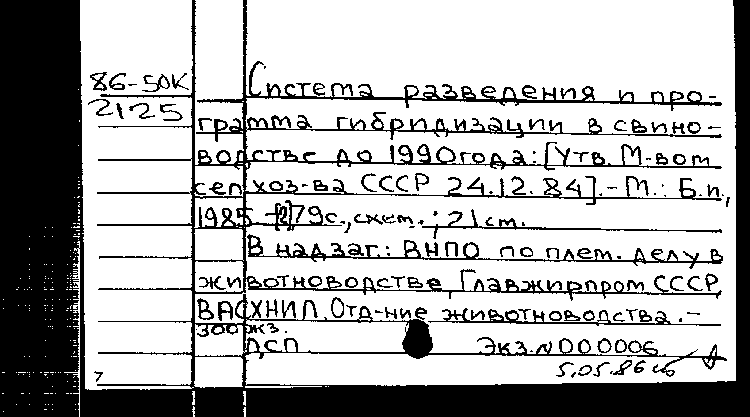 86-50К
2125
Система разведения и про-
грамма гибридизации в свино-
водстве до 1990 года: [Утв. М-вом
сел хоз-ва СССР 24.12.84]. - М.: Б.и.,
1985 - [2] 79 с., схем.; 21 см.
В надзаг.: ВНПО по плем. делу в
животноводстве, Главжирпром СССР,
ВАСХНИЛ. Отд-ние животноводства. -
300 жз.
ДСП. Экз. N 000006
5.05.86
7